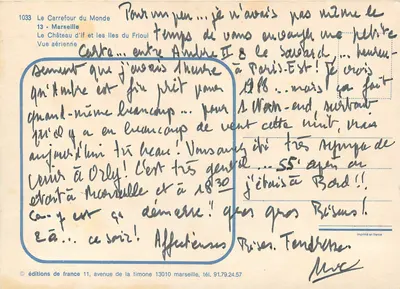 1033 Le Carrefour du Monde
13 - Marseille
Le Château d'If et les Iles du Frioul
Vue aérienne
Pour un peu... je n'avais pas même le
temps de vous envoyer une petite
Carte... entre & le ... heureu-
sement que j'avais 1 heure à Paris-Est! Je crois
qu' fin prêt pour ... mais ça fait
quand-même beaucoup... pour 1 Week-end surtout
qu'il y a eu beaucoup de vent cette nuit, mais
aujourd'hui très beau! Vous avez été très sympa de
venir à Orly! C'est très gentil... 55' après on
était à Marseille et à 18 30 j'étais à Bord!!
Ca y est ça démarre! gros gros Bisous!
à... ce soir! Affectueuses Bises. Tendresses
© éditions de france 11, avenue de la timone 13010 marseille, tél. 91.79.24.57